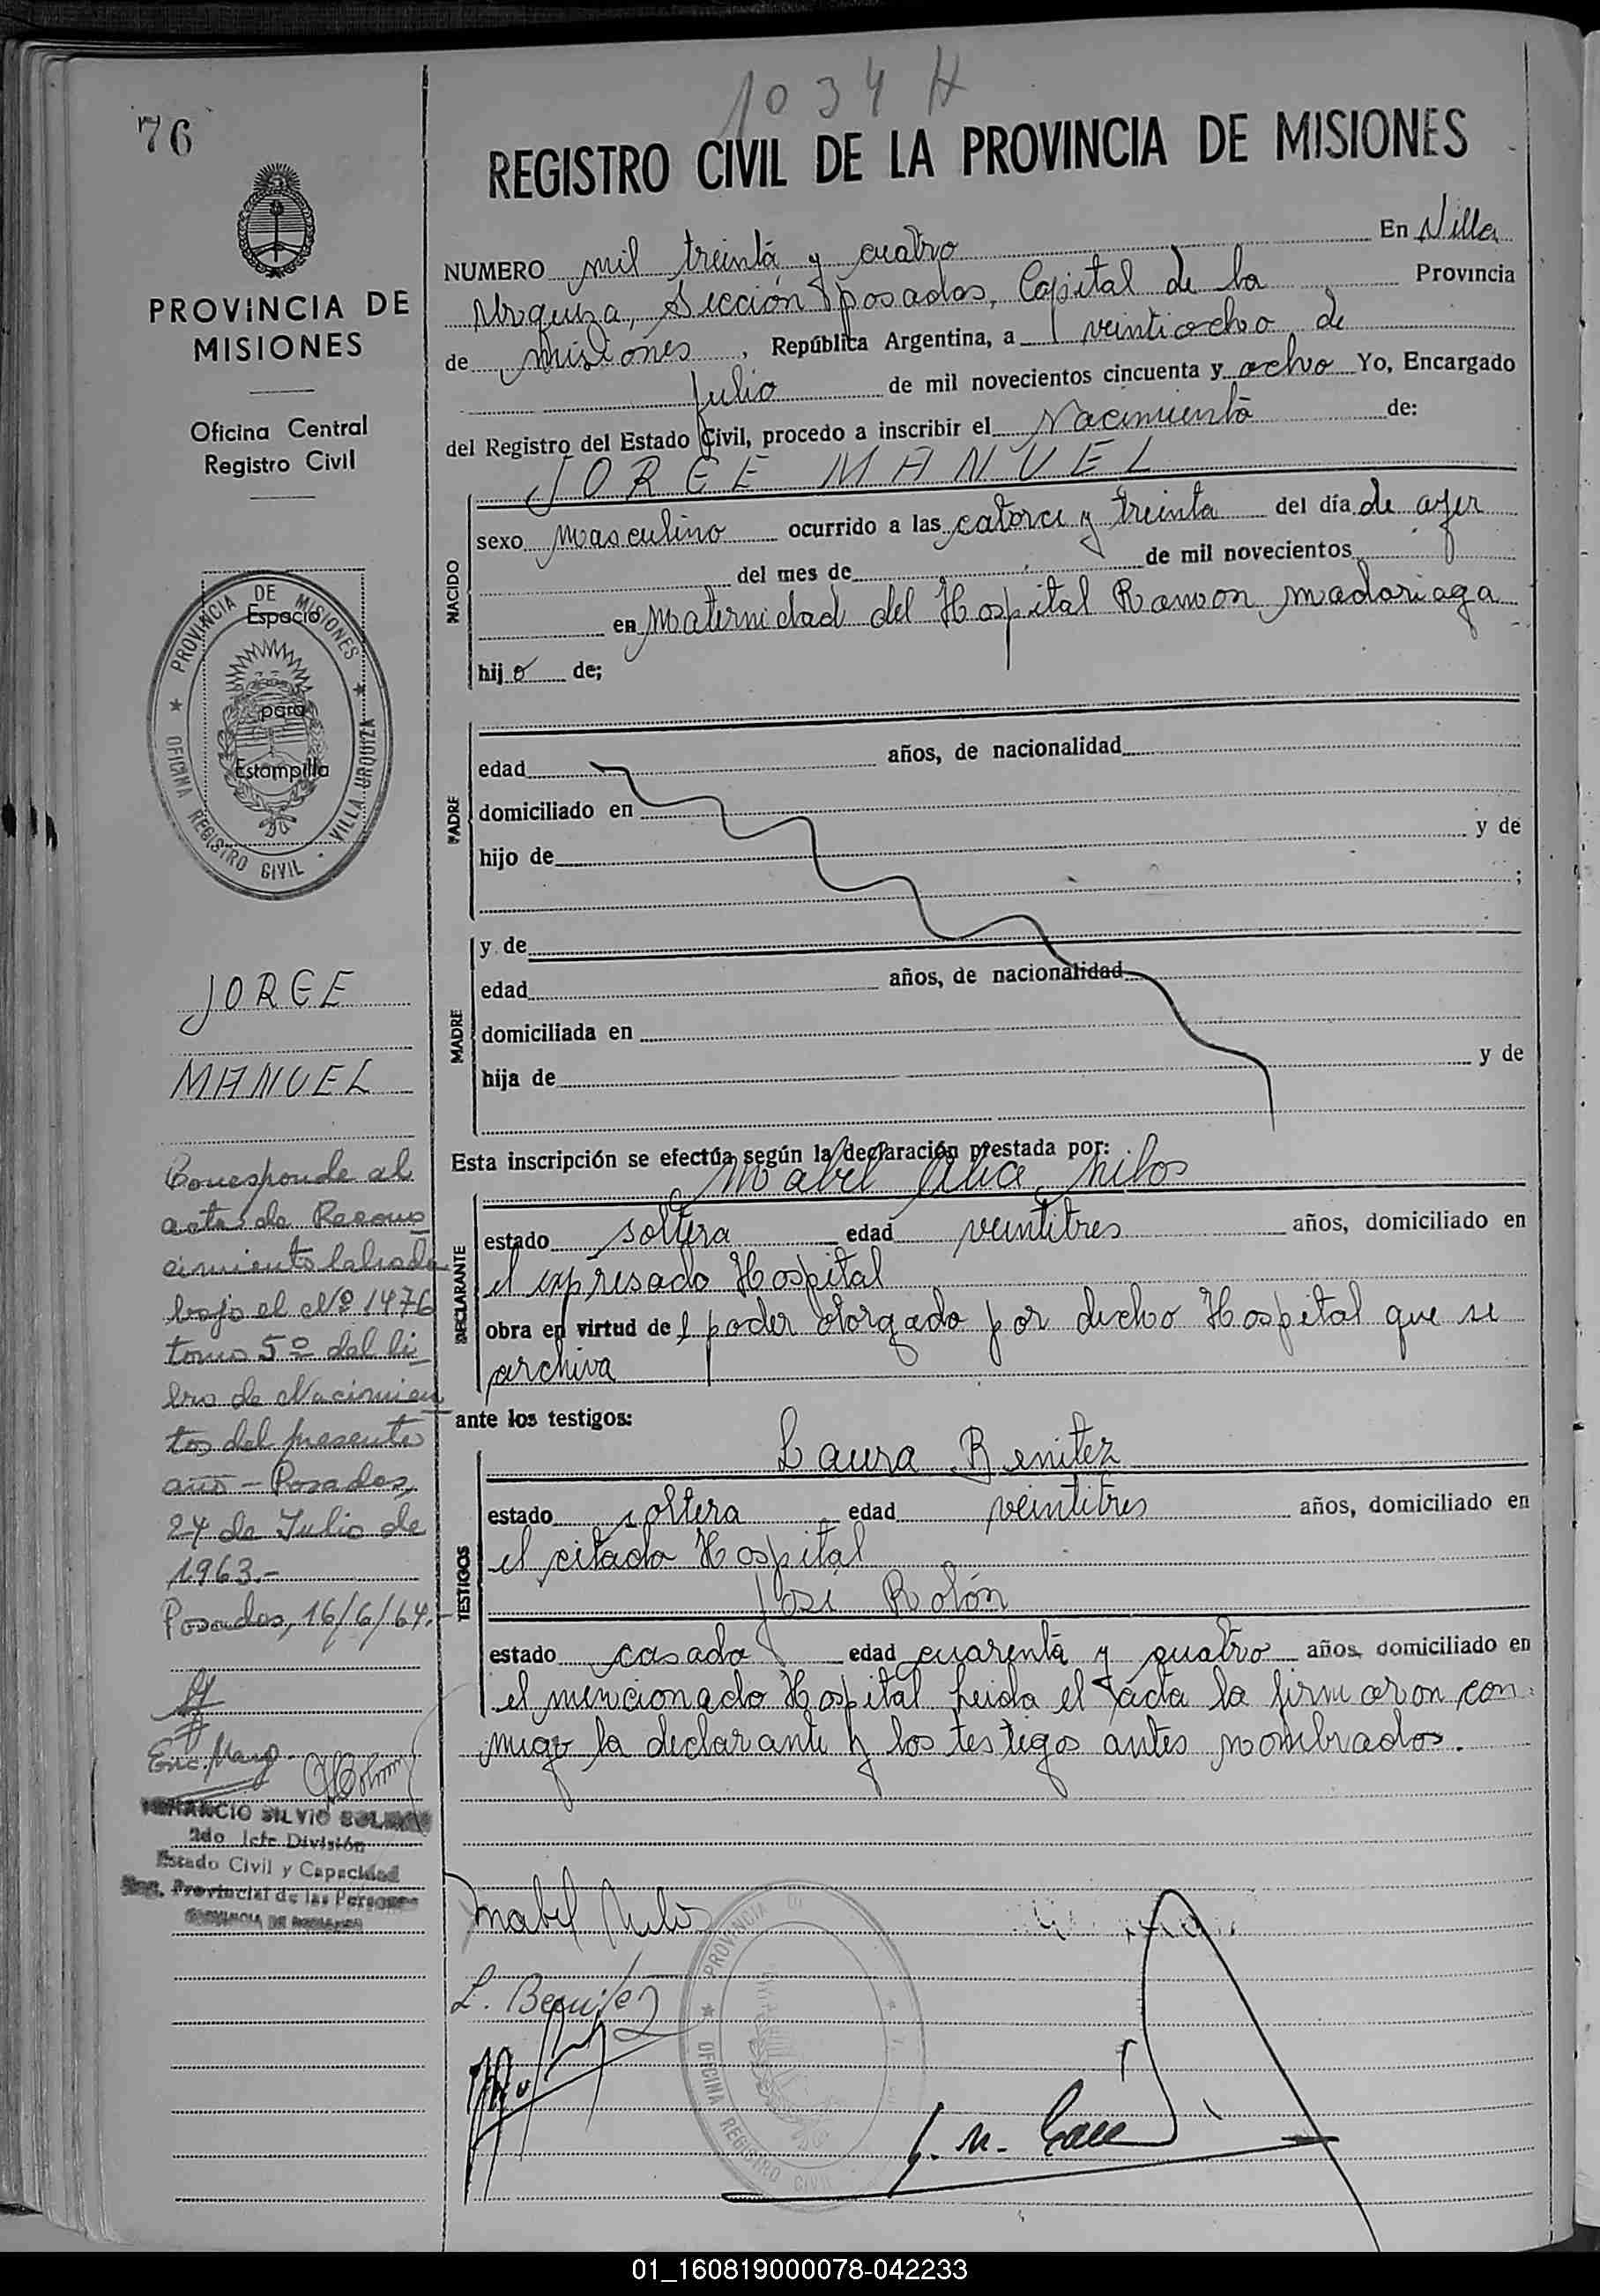 1034 H
76
REGISTRO CIVIL DE LA PROVINCIA DE MISIONES
PROVINCIA DE
MISIONES
Oficina Central
Registro Civil
PROVINCIA DE MISIONES
Espacio
para
Estampilla
OFICINA REGISTRO CIVIL · VILLA URQUIZA
JORGE
MANUEL
Corresponde al
acta de Recono
cimiento labrada
bajo el Nº 1476
tomo 5º del li
bro de Nacimien
tos del presente
año - Posadas,
24 de Julio de
1963.-
Posadas, 16/6/64.-
Enc. Marg.
VENANCIO SILVIO
2do Jefe División
Estado Civil y Capacidad
Reg. Provincial de las Personas
PROVINCIA DE MISIONES
NUMERO mil treinta y cuatro En Villa
Urquiza, Sección Posadas, Capital de la Provincia
de Misiones, República Argentina, a veintiocho de
Julio de mil novecientos cincuenta y ocho Yo, Encargado
del Registro del Estado Civil, procedo a inscribir el Nacimiento de:
JORGE MANUEL
NACIDO
sexo masculino ocurrido a las catorce y treinta del día de ayer
del mes de de mil novecientos
en Maternidad del Hospital Ramon Madariaga
hijo de;
PADRE
edad años, de nacionalidad
domiciliado en
hijo de y de
;
MADRE
y de
edad años, de nacionalidad
domiciliada en
hija de y de
Esta inscripción se efectúa según la declaración prestada por:
Mabel Alice Nilos
DECLARANTE
estado soltera edad veintitres años, domiciliado en
el expresado Hospital
obra en virtud del poder otorgado por dicho Hospital que se
archiva
ante los testigos:
Laura Benitez
TESTIGOS
estado soltera edad veintitres años, domiciliado en
el citado Hospital
José Rolón
estado casado edad cuarenta y cuatro años, domiciliado en
el mencionado Hospital Leida el acta la firmaron con
migo la declarante y los testigos antes nombrados.
Mabel Nilos
L. Benitez
PROVINCIA
OFICINA REGISTRO CIVIL
01_160819000078-042233